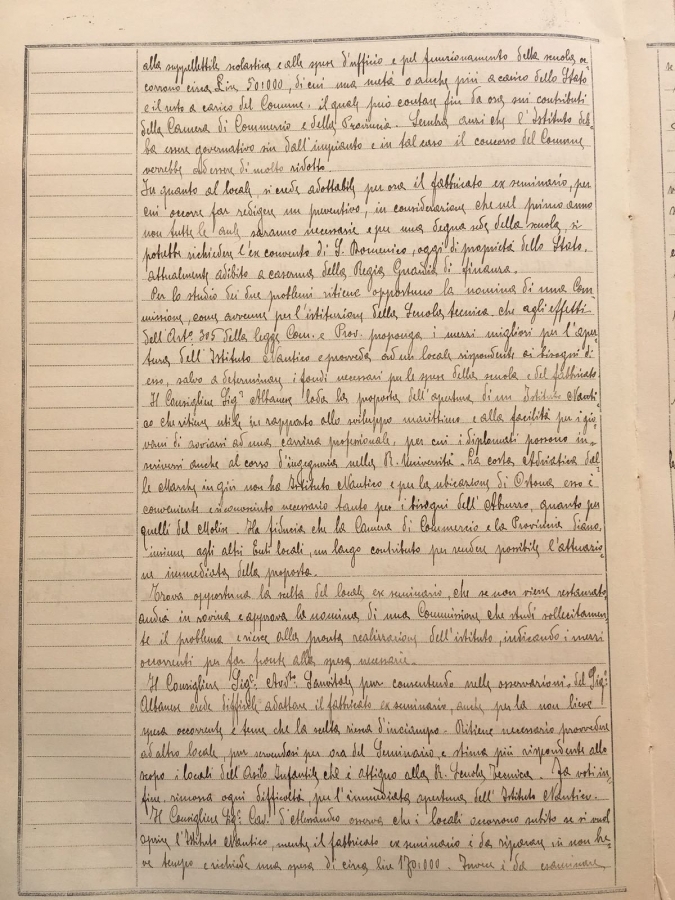 alla suppellettile scolastica e alle spese d'ufficio e pel funzionamento della scuola oc=
corrono circa Lire 50:000, di cui una metà o anche più a carico dello Stato
e il resto a carico del Comune, il quale può contare fin da ora sui contributi
della Camera di Commercio e della Provincia. Sembra anzi che l'Istituto deb=
ba essere governativo sin dall'impianto e in tal caso il concorso del Comune
verrebbe ad essere di molto ridotto.
In quanto al locale si crede adottabile per ora il fabbricato ex seminario, per
cui occorre far redigere un preventivo, in considerazione che nel primo anno
non tutte le aule saranno necessarie e per una degna sede della scuola, si
potrebbe richiedere l'ex convento di S. Domenico, oggi di proprietà dello Stato,
attualmente adibito a caserma della Regia Guardia di finanza.
Per lo studio dei due problemi ritiene opportuno la nomina di una Com=
missione, come avvenne per l'istituzione della Scuola tecnica, che agli effetti
dell'Art.o 305 della legge Com. e Prov. proponga i mezzi migliori per l'aper=
tura dell'Istituto Nautico e provveda ad un locale rispondente ai bisogni di
esso, salvo a determinare i fondi necessari per le spese della scuola e del fabbricato.
Il Consigliere Sig.r Albanese loda la proposta dell'apertura di un Istituto Nauti=
co che ritiene utile in rapporto allo sviluppo marittimo e alla facilità per i gio=
vani di avviarsi ad una carriera professionale, per cui i diplomati possono in=
scriversi anche al corso d'ingegneria nella R. Università. La costa Adriatica dal=
le Marche in giù non ha Istituto Nautico e per la ubicazione di Ortona esso è
conveniente e riconosciuto necessario tanto per i bisogni dell'Abruzzo, quanto per
quelli del Molise. Ha fiducia che la Camera di Commercio e la Provincia diano,
insieme agli altri Enti locali, un largo contributo per rendere possibile l'attuazio=
ne immediata della proposta.
Trova opportuna la scelta del locale ex seminario, che se non viene restaurato,
andrà in rovina e approva la nomina di una Commissione che studi sollecitamen=
te il problema e riesca alla pronta realizzazione dell'istituto, indicando i mezzi
occorrenti per far fronte alla spesa necessaria.
Il Consigliere Sig.r Avv.to Sanvitale pur consentendo nelle osservazioni del Sig.r
Albanese crede difficile adattare il fabbricato ex seminario, anche per la non lieve
spesa occorrente e teme che la scelta riesca d'inciampo. Ritiene necessario provvedere
ad altro locale, pur servendosi per ora del Seminario, e stima più rispondente allo
scopo i locali dell'Asilo Infantile che è attiguo alla R. Scuola Tecnica. Fa voti in=
fine, rimossa ogni difficoltà, per l'immediata apertura dell'Istituto Nautico.
Il Consigliere Sig.r Cav. d'Alessandro osserva che i locali occorrono subito se si vuol
aprire l'Istituto Nautico, mentre il fabbricato ex seminario è da riparare in non bre=
ve tempo e richiede una spesa di circa lire 170:000. Invece è da esaminare